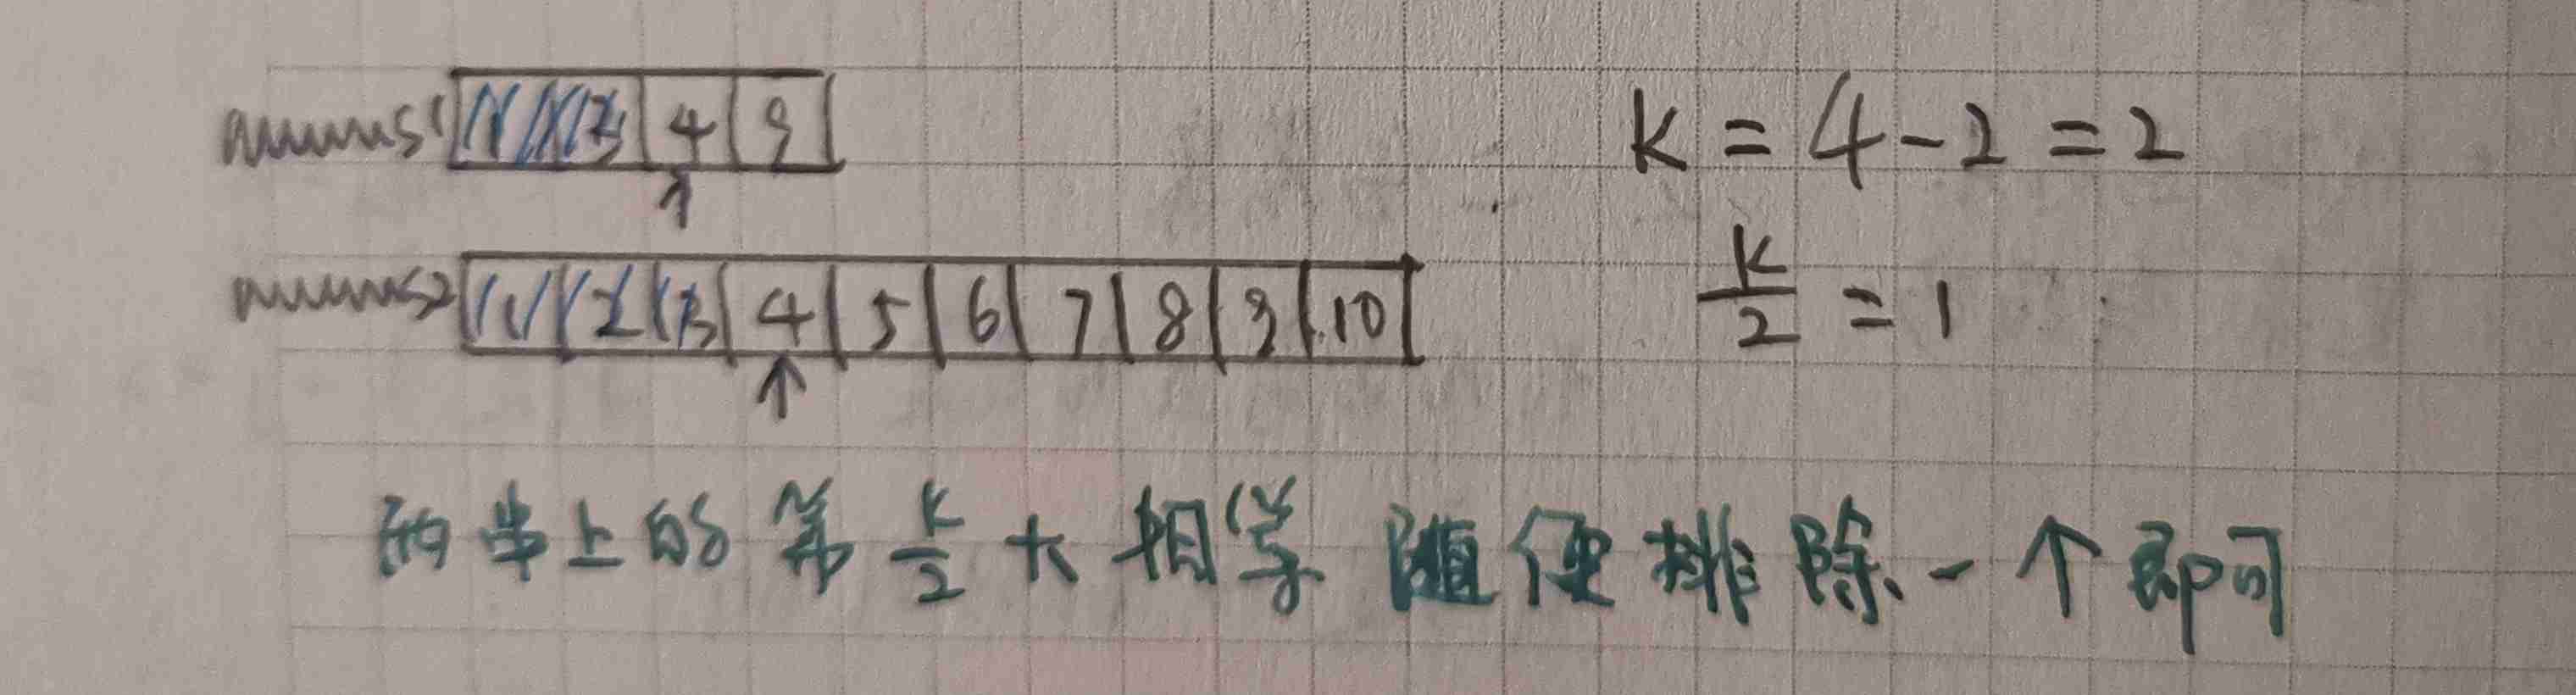 nums1 1 3 4 9
k = 4 - 2 = 2
nums2 1 2 3 4 5 6 7 8 9 10
k/2 = 1
两串上的第 k/2 大相等 随便排除一个即可